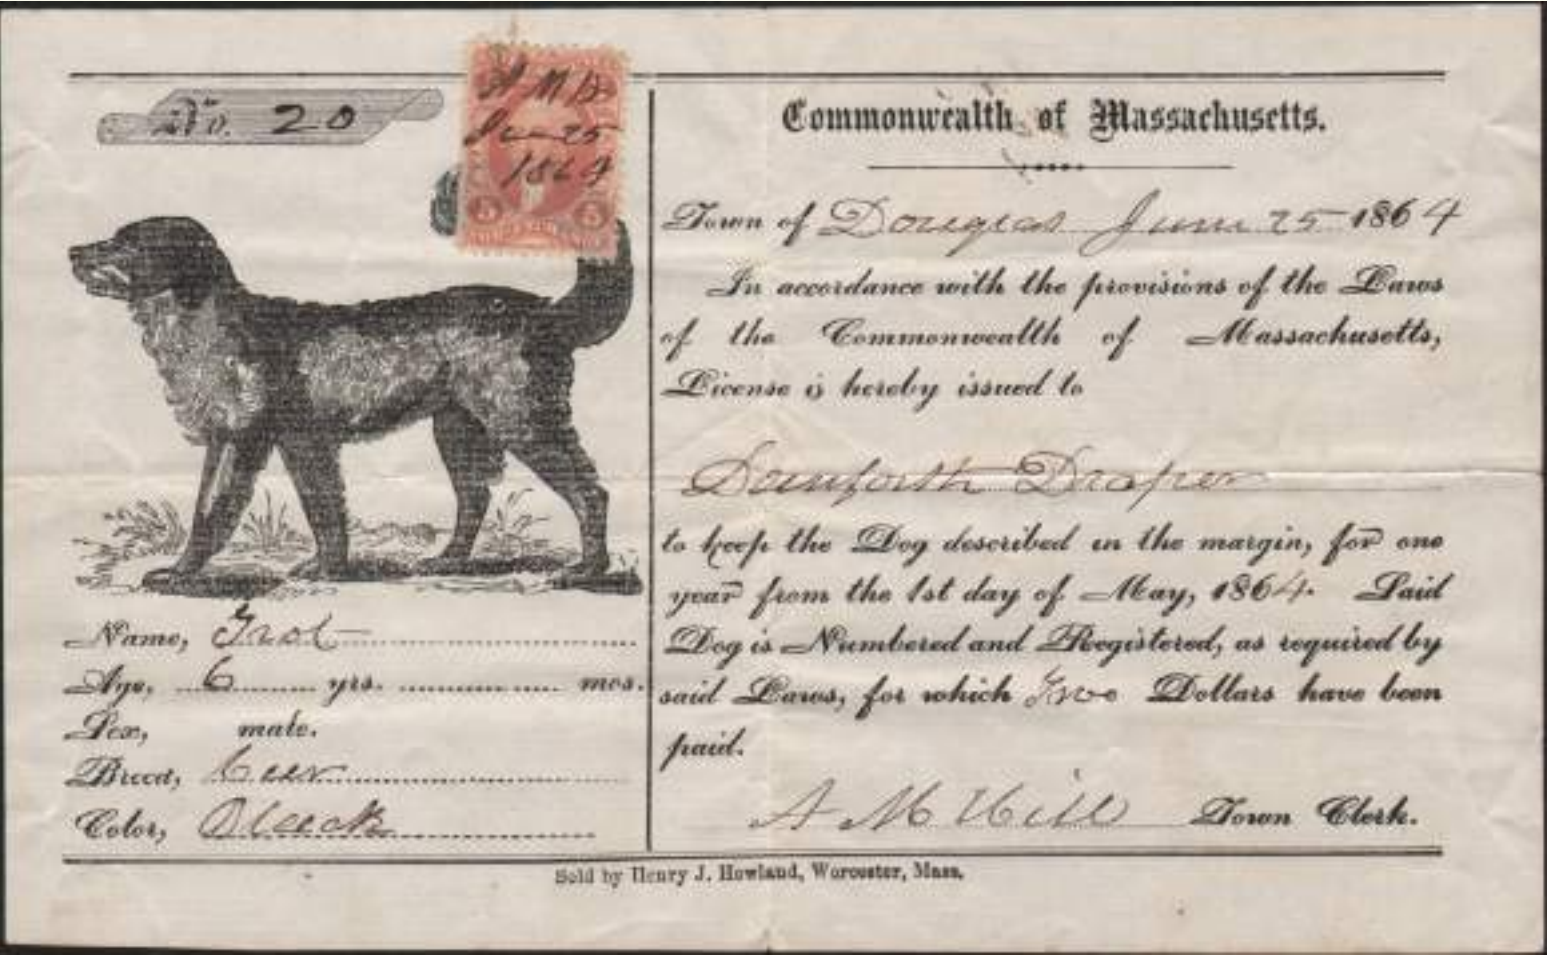 No. 20
A M H
Jun 25
1864
5 5
Commonwealth of Massachusetts.
Town of Douglas June 25 1864
In accordance with the provisions of the Laws
of the Commonwealth of Massachusetts,
License is hereby issued to
Danforth Draper
to keep the Dog described in the margin, for one
year from the 1st day of May, 1864. Said
Dog is Numbered and Registered, as required by
said Laws, for which Two Dollars have been
paid.
A M Hill Town Clerk.
Name,
Age, 6 yrs. mos.
Sex, male.
Breed,
Color, Black
Sold by Henry J. Howland, Worcester, Mass.